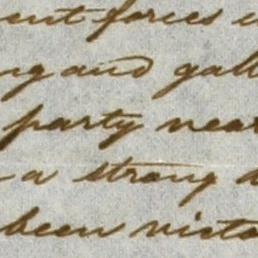 ent forces
ng and gall
party near
a strong
been victo